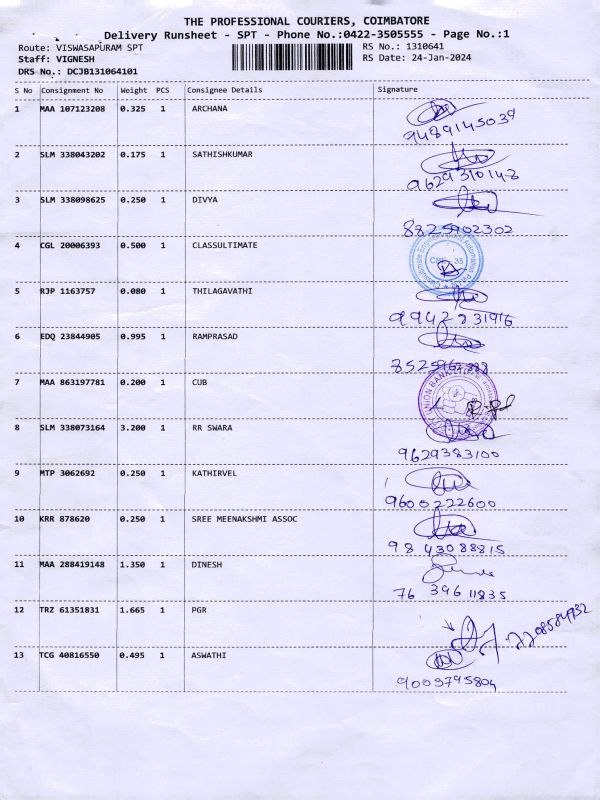 THE PROFESSIONAL COURIERS, COIMBATORE
Delivery Runsheet - SPT - Phone No.:0422-3505555 - Page No.:1
Route: VISWASAPURAM SPT RS No.: 1310641
Staff: VIGNESH RS Date: 24-Jan-2024
DRS No.: DCJB131064101
S No Consignment No Weight PCS Consignee Details Signature
1 MAA 107123208 0.325 1 ARCHANA
9489145039
2 SLM 338043202 0.175 1 SATHISHKUMAR
9629310148
3 SLM 338098625 0.250 1 DIVYA
8825902302
4 CGL 20006393 0.500 1 CLASSULTIMATE
CBE - 35
5 RJP 1163757 0.080 1 THILAGAVATHI
9942831916
6 EDQ 23844905 0.995 1 RAMPRASAD
7 MAA 863197781 0.200 1 CUB
UNION BANK
8 SLM 338073164 3.200 1 RR SWARA
9629383100
9 MTP 3062692 0.250 1 KATHIRVEL
9600222600
10 KRR 878620 0.250 1 SREE MEENAKSHMI ASSOC
9843088815
11 MAA 288419148 1.350 1 DINESH
76 39611835
12 TRZ 61351831 1.665 1 PGR
13 TCG 40816550 0.495 1 ASWATHI
9003795804